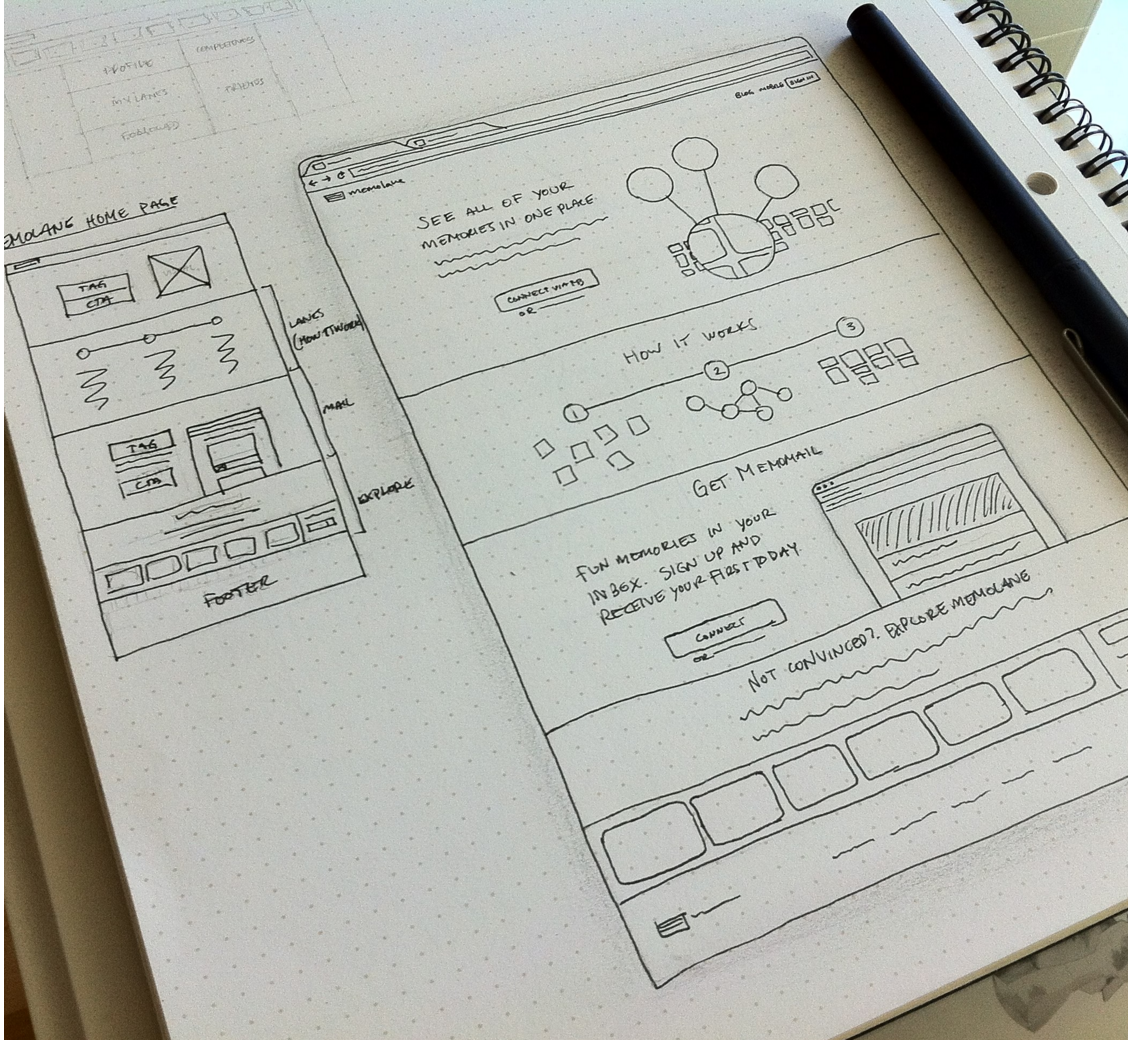 PROFILE
MY LANES
EMOLANE HOME PAGE
TAG
CTA
LANES
(HOW IT WORKS)
MAIL
TAG
CTA
EXPLORE
FOOTER
memolane
BLOG MOBILE SIGN IN
SEE ALL OF YOUR
MEMORIES IN ONE PLACE
CONNECT VIA FB
OR
HOW IT WORKS
1
2
3
GET MEMOMAIL
FUN MEMORIES IN YOUR
INBEX. SIGN UP AND
RECEIVE YOUR FIRST TODAY.
CONNECT
OR
NOT CONVINCED? EXPLORE MEMOLANE